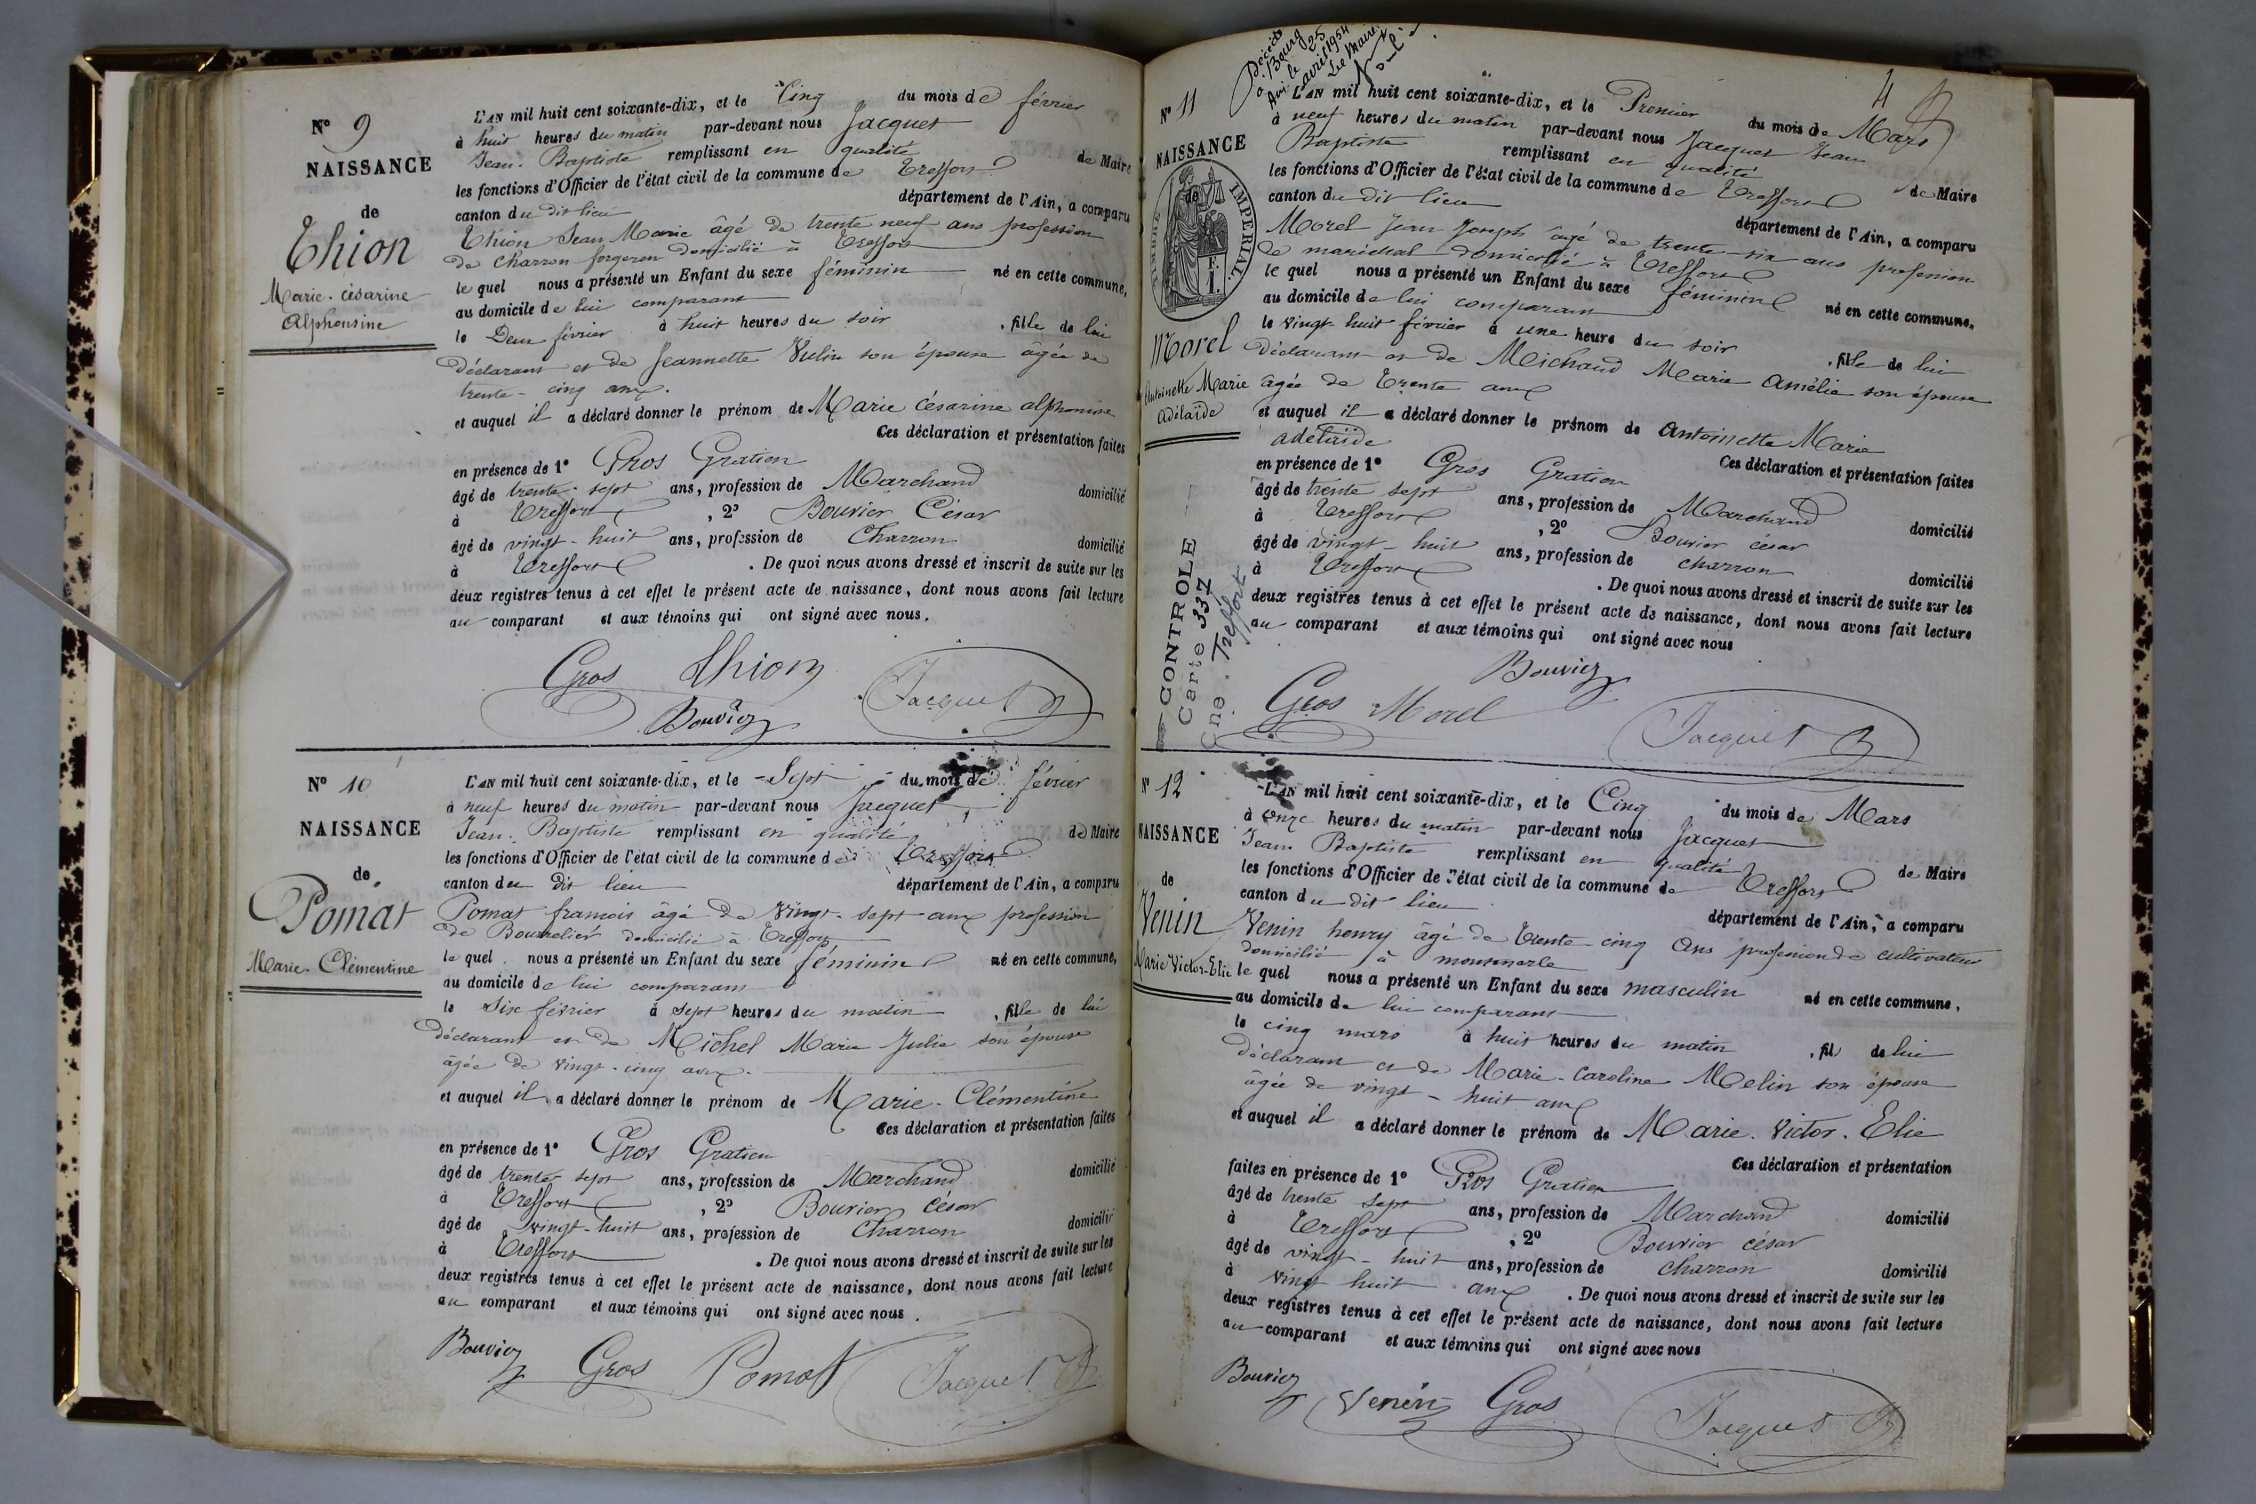 N° 9
NAISSANCE
de
Thion
Marie-Césarine
Alphonsine
L'AN mil huit cent soixante-dix, et le Cinq du mois de février
à huit heures du matin par-devant nous Jacquet
Jean-Baptiste remplissant en qualité de Maire
les fonctions d'Officier de l'état civil de la commune de Treffort
canton du dit lieu département de l'Ain, a comparu
Thion Jean Marie âgé de trente neuf ans profession
de charron forgeron domicilié à Treffort
le quel nous a présenté un Enfant du sexe féminin né en cette commune,
au domicile de lui comparant
le Deux février à huit heures du soir, fille de lui
déclarant et de Jeannette Vulin son épouse âgée de
trente-cinq ans.
et auquel il a déclaré donner le prénom de Marie Césarine alphonsine
Ces déclaration et présentation faites
en présence de 1° Gros Gratien
âgé de trente-sept ans, profession de Marchand domicilié
à Treffort, 2° Bouvier César
âgé de vingt-huit ans, profession de Charron domicilié
à Treffort. De quoi nous avons dressé et inscrit de suite sur les
deux registres tenus à cet effet le présent acte de naissance, dont nous avons fait lecture
au comparant et aux témoins qui ont signé avec nous.
Gros Thion Jacquet
Bouvier
N° 10
NAISSANCE
de
Pomat
Marie-Clémentine
L'AN mil huit cent soixante-dix, et le Sept du mois de février
à neuf heures du matin par-devant nous Jacquet
Jean-Baptiste remplissant en qualité de Maire
les fonctions d'Officier de l'état civil de la commune de Treffort
canton du dit lieu département de l'Ain, a comparu
Pomat francois âgé de Vingt-sept ans profession
de Bourrelier domicilié à Treffort
le quel nous a présenté un Enfant du sexe féminin né en cette commune,
au domicile de lui comparant
le Six février à sept heures du matin, fille de lui
déclarant et de Michel Marie Julie son épouse
âgée de vingt-cinq ans.
et auquel il a déclaré donner le prénom de Marie-Clémentine
Ces déclaration et présentation faites
en présence de 1° Gros Gratien
âgé de trente sept ans, profession de Marchand domicilié
à Treffort, 2° Bouvier César
âgé de vingt-huit ans, profession de Charron domicilié
à Treffort. De quoi nous avons dressé et inscrit de suite sur les
deux registres tenus à cet effet le présent acte de naissance, dont nous avons fait lecture
au comparant et aux témoins qui ont signé avec nous.
Bouvier Gros Pomat Jacquet
4
Décédée
à Bourg
le 25
avril 1954
Le Maire
N° 11
NAISSANCE
de
TIMBRE IMPERIAL
1 F.
Morel
Antoinette Marie
Adélaïde
CONTROLE
Carte 337
Cne. Treffort
L'AN mil huit cent soixante-dix, et le Premier du mois de Mars
à neuf heures du matin par-devant nous Jacquet Jean
Baptiste remplissant en qualité de Maire
les fonctions d'Officier de l'état civil de la commune de Treffort
canton du dit lieu département de l'Ain, a comparu
Morel Jean Joseph âgé de trente-six ans profession
de maréchal domicilié à Treffort
le quel nous a présenté un Enfant du sexe féminin né en cette commune,
au domicile de lui comparant
le vingt-huit février à une heure du soir, fille de lui
déclarant et de Michaud Marie Amélie son épouse
âgée de Trente ans
et auquel il a déclaré donner le prénom de Antoinette Marie
adélaïde
Ces déclaration et présentation faites
en présence de 1° Gros Gratien
âgé de trente sept ans, profession de Marchand domicilié
à Treffort, 2° Bouvier césar
âgé de vingt-huit ans, profession de charron domicilié
à Treffort. De quoi nous avons dressé et inscrit de suite sur les
deux registres tenus à cet effet le présent acte de naissance, dont nous avons fait lecture
au comparant et aux témoins qui ont signé avec nous
Bouvier
Gros Morel Jacquet
N° 12
NAISSANCE
de
Venin
Marie Victor-Elie
L'AN mil huit cent soixante-dix, et le Cinq du mois de Mars
à onze heures du matin par-devant nous Jacquet
Jean Baptiste remplissant en qualité de Maire
les fonctions d'Officier de l'état civil de la commune de Treffort
canton du dit lieu département de l'Ain, a comparu
Venin henry âgé de Trente-cinq ans profession de cultivateur
domicilié à
le quel nous a présenté un Enfant du sexe masculin né en cette commune,
au domicile de lui comparant
le cinq mars à huit heures du matin, fils de lui
déclarant et de Marie-Caroline Melin son épouse
âgée de vingt-huit ans
et auquel il a déclaré donner le prénom de Marie-Victor-Elie
Ces déclaration et présentation
faites en présence de 1° Gros Gratien
âgé de trente sept ans, profession de Marchand domicilié
à Treffort, 2° Bouvier césar
âgé de vingt-huit ans, profession de charron domicilié
à vingt huit ans. De quoi nous avons dressé et inscrit de suite sur les
deux registres tenus à cet effet le présent acte de naissance, dont nous avons fait lecture
au comparant et aux témoins qui ont signé avec nous
Bouvier Venin Gros Jacquet